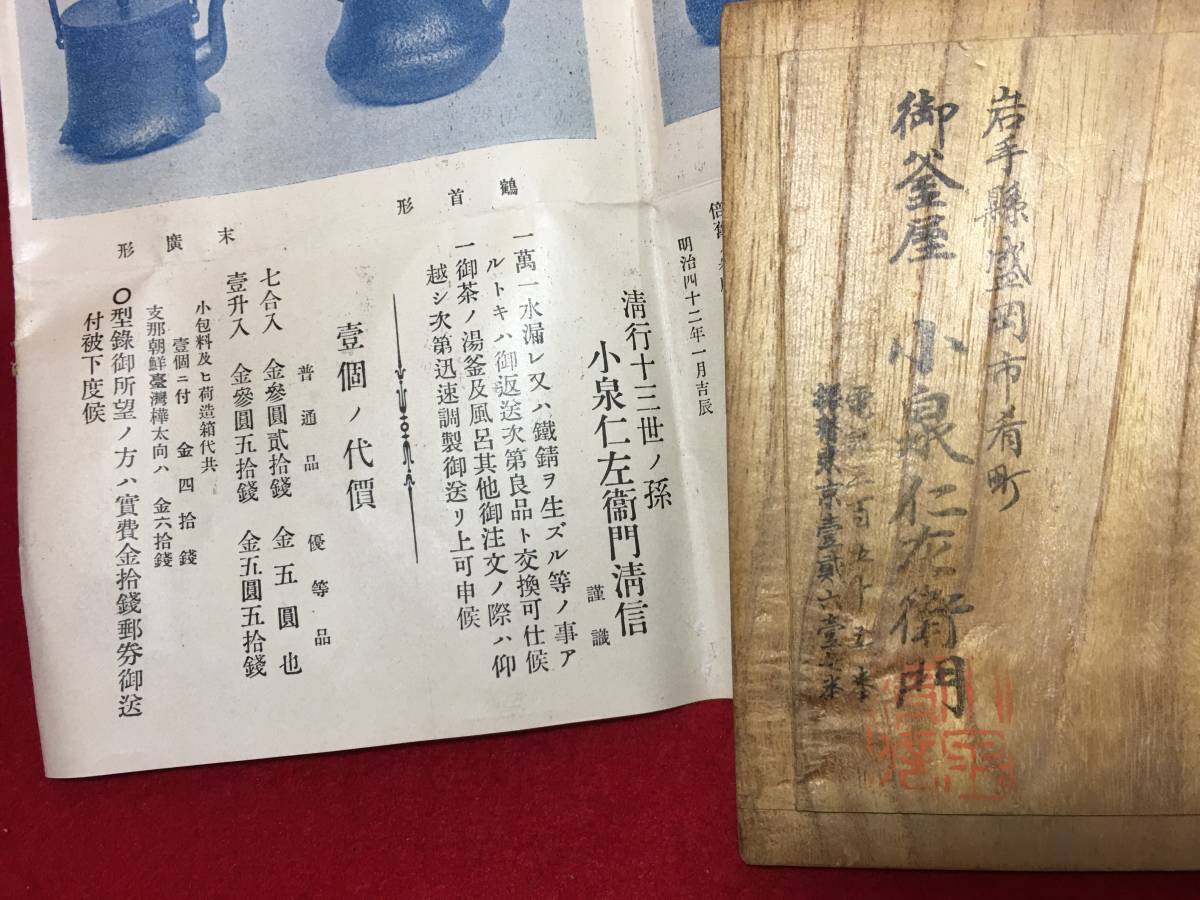 岩手縣盛岡市肴町
御釜屋 小泉仁左衞門
明治四十二年一月吉辰
清行十三世ノ孫
小泉仁左衞門清信
謹識
一萬一水漏レ又ハ鐵錆ヲ生ズル等ノ事ア
ルトキハ御返送次第良品ト交換可仕候
一御茶ノ湯釜及風呂其他御注文ノ際ハ仰
越シ次第迅速調製御送リ上可申候
鶴首形
壹個ノ代價
普通品 優等品
七合入 金參圓貳拾錢 金五圓也
壹升入 金參圓五拾錢 金五圓五拾錢
小包料及ヒ荷造箱代共
壹個ニ付 金四拾錢
支那朝鮮臺灣樺太向ハ 金六拾錢
〇型錄御所望ノ方ハ實費金拾錢郵券御送
付被下度候
末廣形